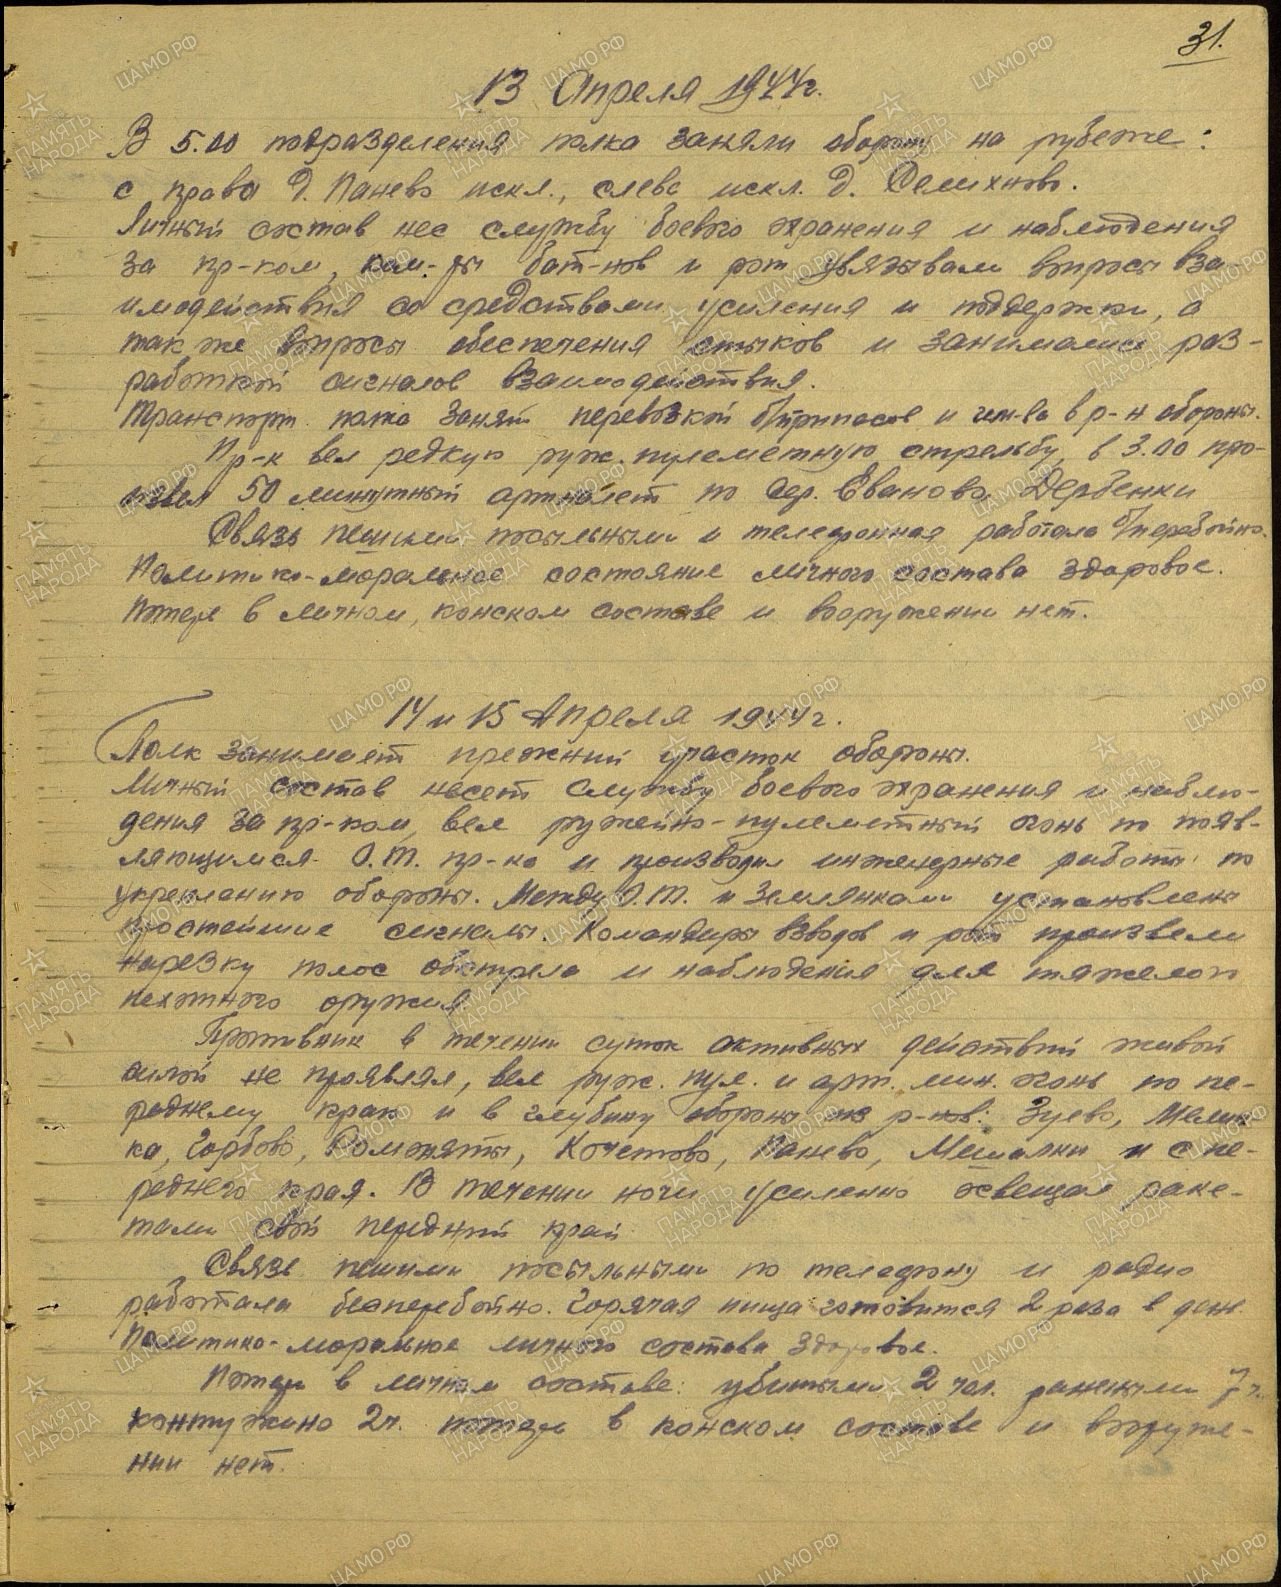 31.
13 Апреля 1944г.
В 5.00 подразделения полка заняли оборону на рубеже:
с права д. Панево искл., слева искл. д. Селихново.
Личный состав нес службу боевого охранения и наблюдения
за пр-ком, ком-ры бат-нов и рот увязывали вопросы вза
имодействия со средствами усиления и поддержки, а
так же вопросы обеспечения стыков и занимались раз-
работкой сигналов взаимодействия.
Транспорт полка занят перевозкой б/припасов и им-ва в р-н обороны.
Пр-к вел редкую руж. пулеметную стрельбу, в 3.00 про-
извел 50 минутный артналет по дер. Еваново, Дербенки
Связь пешими посыльными и телефонная работала б/перебойно.
Политико-моральное состояние личного состава здоровое.
Потерь в личном, конском составе и вооружении нет.
14 и 15 Апреля 1944г.
Полк занимает прежний участок обороны.
Личный состав несет службу боевого охранения и наблю-
дения за пр-ком, вел ружейно-пулеметный огонь по появ-
ляющимся О.Т. пр-ка и производил инженерные работы по
укреплению обороны. Между О.Т. и землянками установлены
простейшие сигналы. Командиры взводов и рот произвели
нарезку полос обстрела и наблюдения для тяжелого
пехотного оружия.
Противник в течении суток активных действий живой
силой не проявлял, вел руж. пул. и арт. мин. огонь по пе-
реднему краю и в глубину обороны из р-нов: Зуево,
ка, Горбово, Кочетово, Панево, Мешалки и с пе-
реднего края. В течении ночи усиленно освещал раке-
тами свой передний край
Связь пешими посыльными по телефону и радио
работала бесперебойно. Горячая пища готовится 2 раза в день.
Политико-моральное личного состава здоровое.
Потери в личном составе: убитыми 2 чел. ранеными 7 ч.
контужено 2ч. потерь в конском составе и вооруже-
нии нет.
ПАМЯТЬ НАРОДА
ЦАМО.РФ